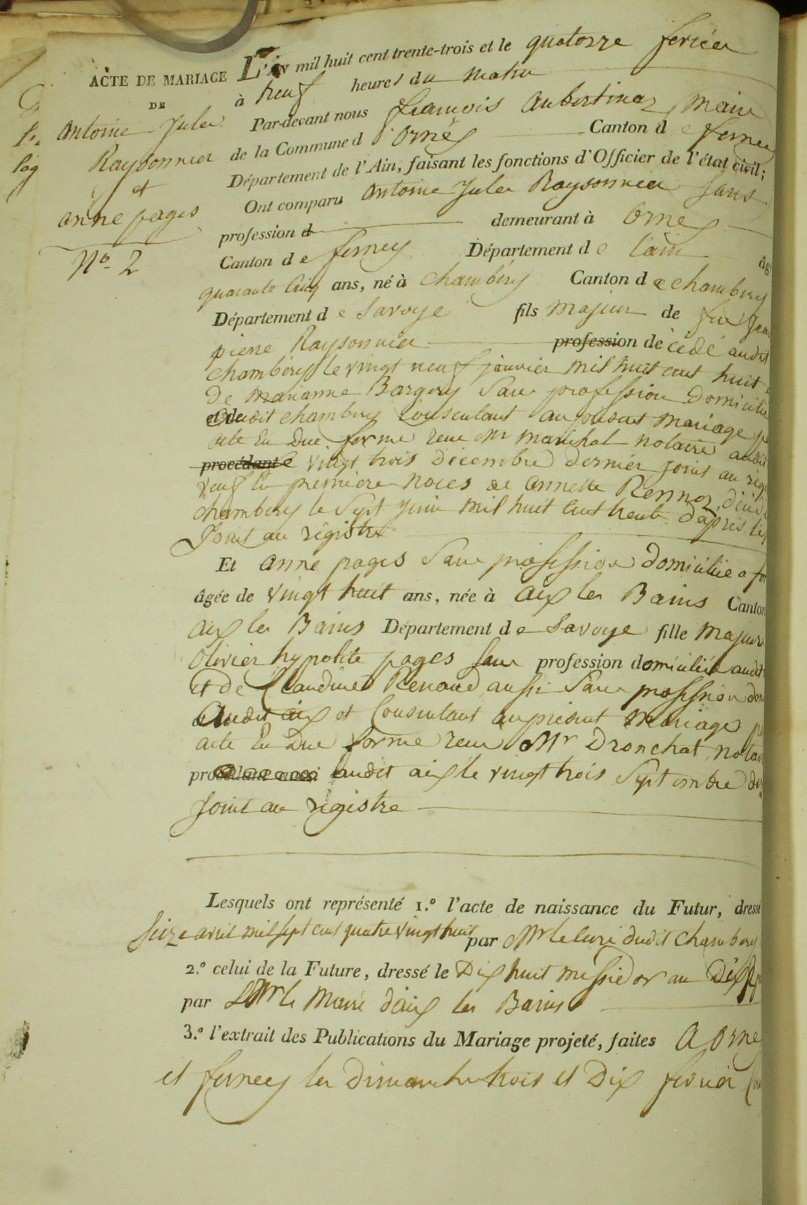 ACTE DE MARIAGE
DE
Antoine Jules
Raysonnier
et
anne pages
N.º 2
L'AN mil huit cent trente-trois et le quatorze fevrier
à neuf heures du matin
Par-devant nous françois aubertinoz, Maire
de la Commune d'Ornex Canton de ferney
Département de l'Ain, faisant les fonctions d'Officier de l'état civil;
Ont comparu Antoine Jules Raysonnier sans
profession d demeurant à Ornex
Canton de ferney Département de l'ain âg
quarante cinq ans, né à chambery Canton de chambery
Département de Savoye fils majeur de feu Jean
pierre Raysonnier profession de décédé audit
chambery le vingt neuf janvier mil huit cent huit
de Marianne Bargery Sans profession domiciliée
audit chambery Consentant au présent mariage p
acte en due forme reçu Mr marechal notaire audit
procédant vingt trois décembre dernier joint au regi
veuf en première noces de annette Rennoz
chambery le sept juin mil huit cent trente d'après
joint au régistre
Et anne pages Sans profession domiciliée a
âgée de vingt huit ans, née à aix les Bains Canton
aix les Bains Département de Savoye fille majeure
Olivier hypolite pages Sans profession domicilié audit
et de Claudine Renaud aussi Sans profession dom
audit aix et Consentant au présent mariage p
acte en due forme reçu Mr Dronchat notaire
audit aix le vingt trois Septembre d
joint au régistre
Lesquels ont représenté 1.º l'acte de naissance du Futur, dressé
Seize avril mil sept cent quatre vingt huit par Mr le curé dudit chambery
2.º celui de la Future, dressé le Dix huit messidor an
par Mr le Maire d'aix les Bains
3.º l'extrait des Publications du Mariage projeté, faites A Ornex
et ferney les Dimanches trois et Dix fevrier